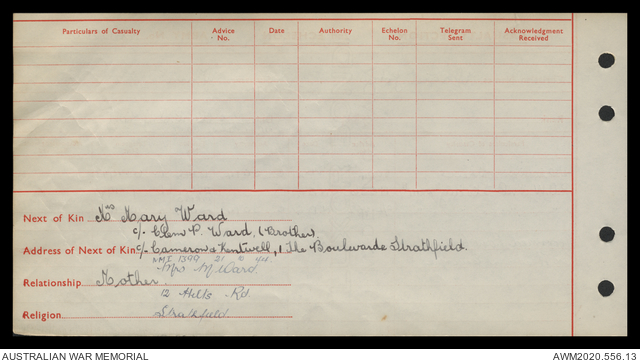 Particulars of Casualty Advice No. Date Authority Echelon No. Telegram Sent Acknowledgment Received
Next of Kin Mrs Mary Ward
c/- Clem P. Ward. (Brother).
Address of Next of Kin c/- Cameron & Kentwell, 1 The Boulevarde Strathfield.
NMI 1399 21
Mrs M Ward.
Relationship Mother
12 Hills Rd
Religion Strathfield
AUSTRALIAN WAR MEMORIAL AWM2020.556.13